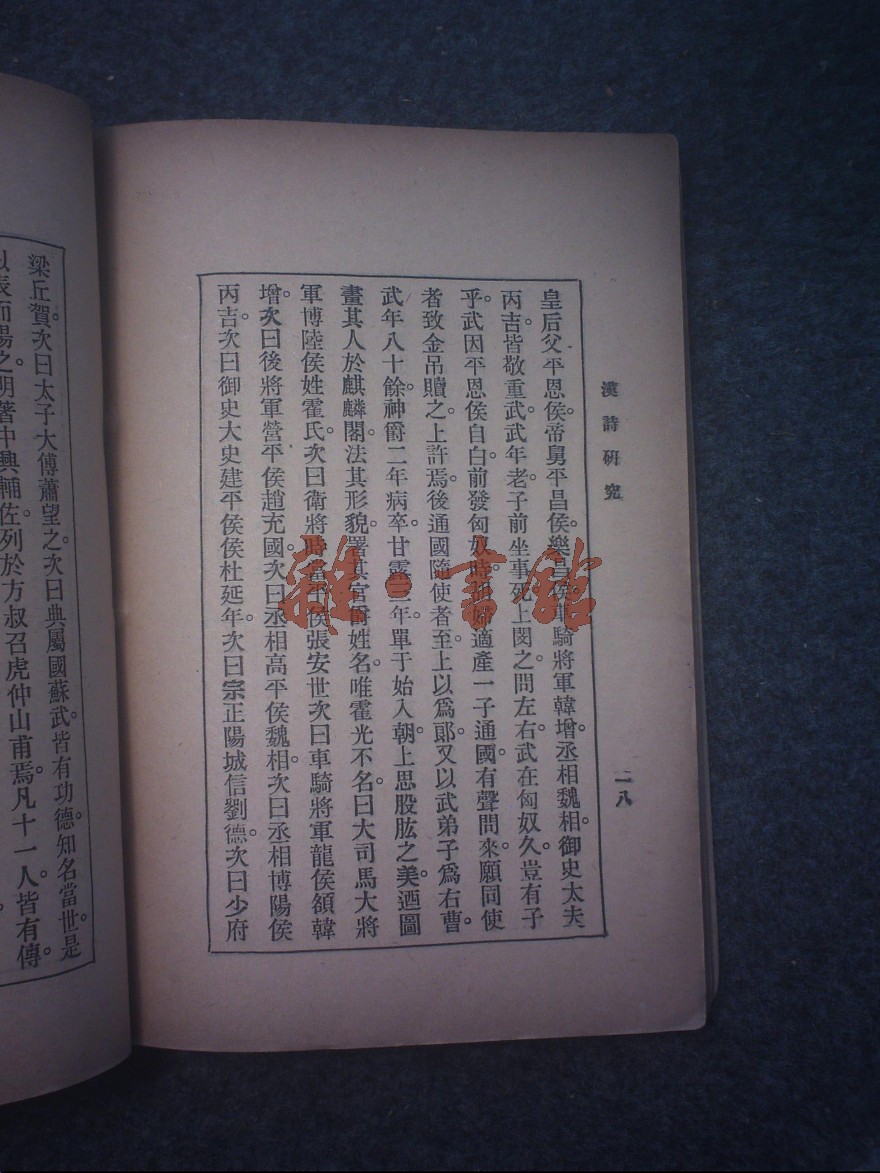 漢詩研究
二八
皇后父平恩侯。帝舅平昌侯。樂昌侯。車騎將軍韓增。丞相魏相。御史太夫
丙吉。皆敬重武。武年老。子前坐事死。上閔之。問左右。武在匈奴久。豈有子
乎。武因平恩侯自白。前發匈奴時。胡婦適產一子通國。有聲問來。願同使
者致金吊贖之。上許焉。後通國隨使者至。上以爲郞。又以武弟子爲右曹。
武年八十餘。神爵二年病卒。甘露三年。單于始入朝。上思股肱之美。迺圖
畫其人於麒麟閣。法其形貌。署其官爵姓名。唯霍光不名。曰大司馬大將
軍博陸侯姓霍氏。次曰衛將 當平侯張安世次曰車騎將軍龍侯額韓
增。次曰後將軍營平侯趙充國。次曰丞相高平侯魏相。次曰丞相博陽侯
丙吉。次曰御史大史建平侯侯杜延年。次曰宗正陽城信劉德。次曰少府
梁丘賀。次曰太子大傅蕭望之。次曰典屬國蘇武。皆有功德。知名當世。是
以表而揚之。明著中興輔佐。列於方叔召虎仲山甫焉。凡十一人。皆有傳。
雜·書館